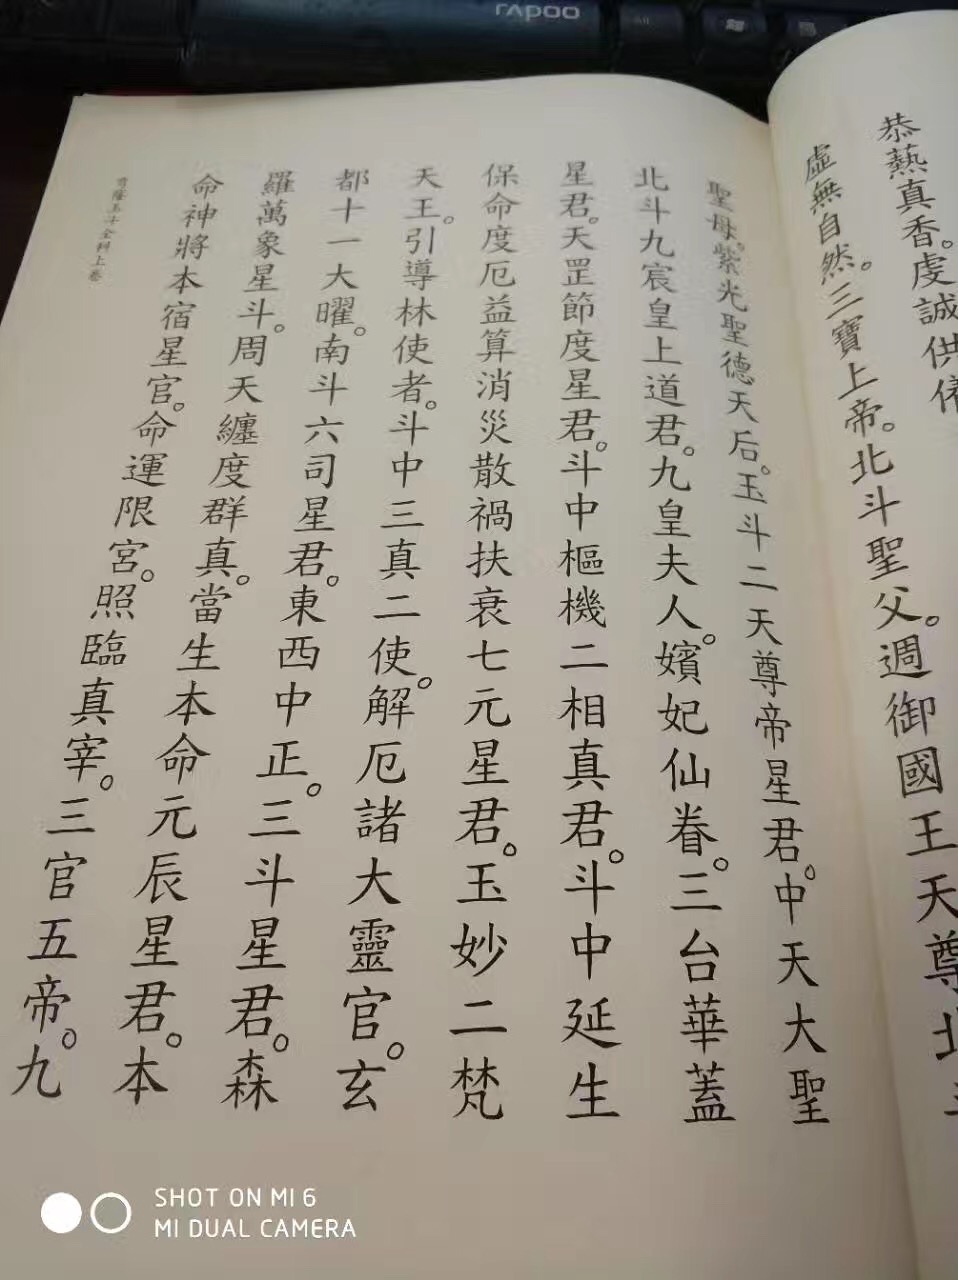 rapoo
恭爇真香。虔誠供
虛無自然。三寶上帝。北斗聖父。週御國王天尊
聖母。紫光聖德天后。玉斗二天尊帝星君。中天大聖
北斗九宸皇上道君。九皇夫人。嬪妃仙眷。三台華蓋
星君。天罡節度星君。斗中樞機二相真君。斗中延生
保命度厄益算消災散禍扶衰七元星君。玉妙二梵
天王。引導林使者。斗中三真二使。解厄諸大靈官。玄
都十一大曜。南斗六司星君。東西中正。三斗星君。森
羅萬象星斗。周天纏度群真。當生本命元辰星君。本
命神將本宿星官。命運限宮。照臨真宰。三官五帝。九
玉斗全科上卷
SHOT ON MI 6
MI DUAL CAMERA